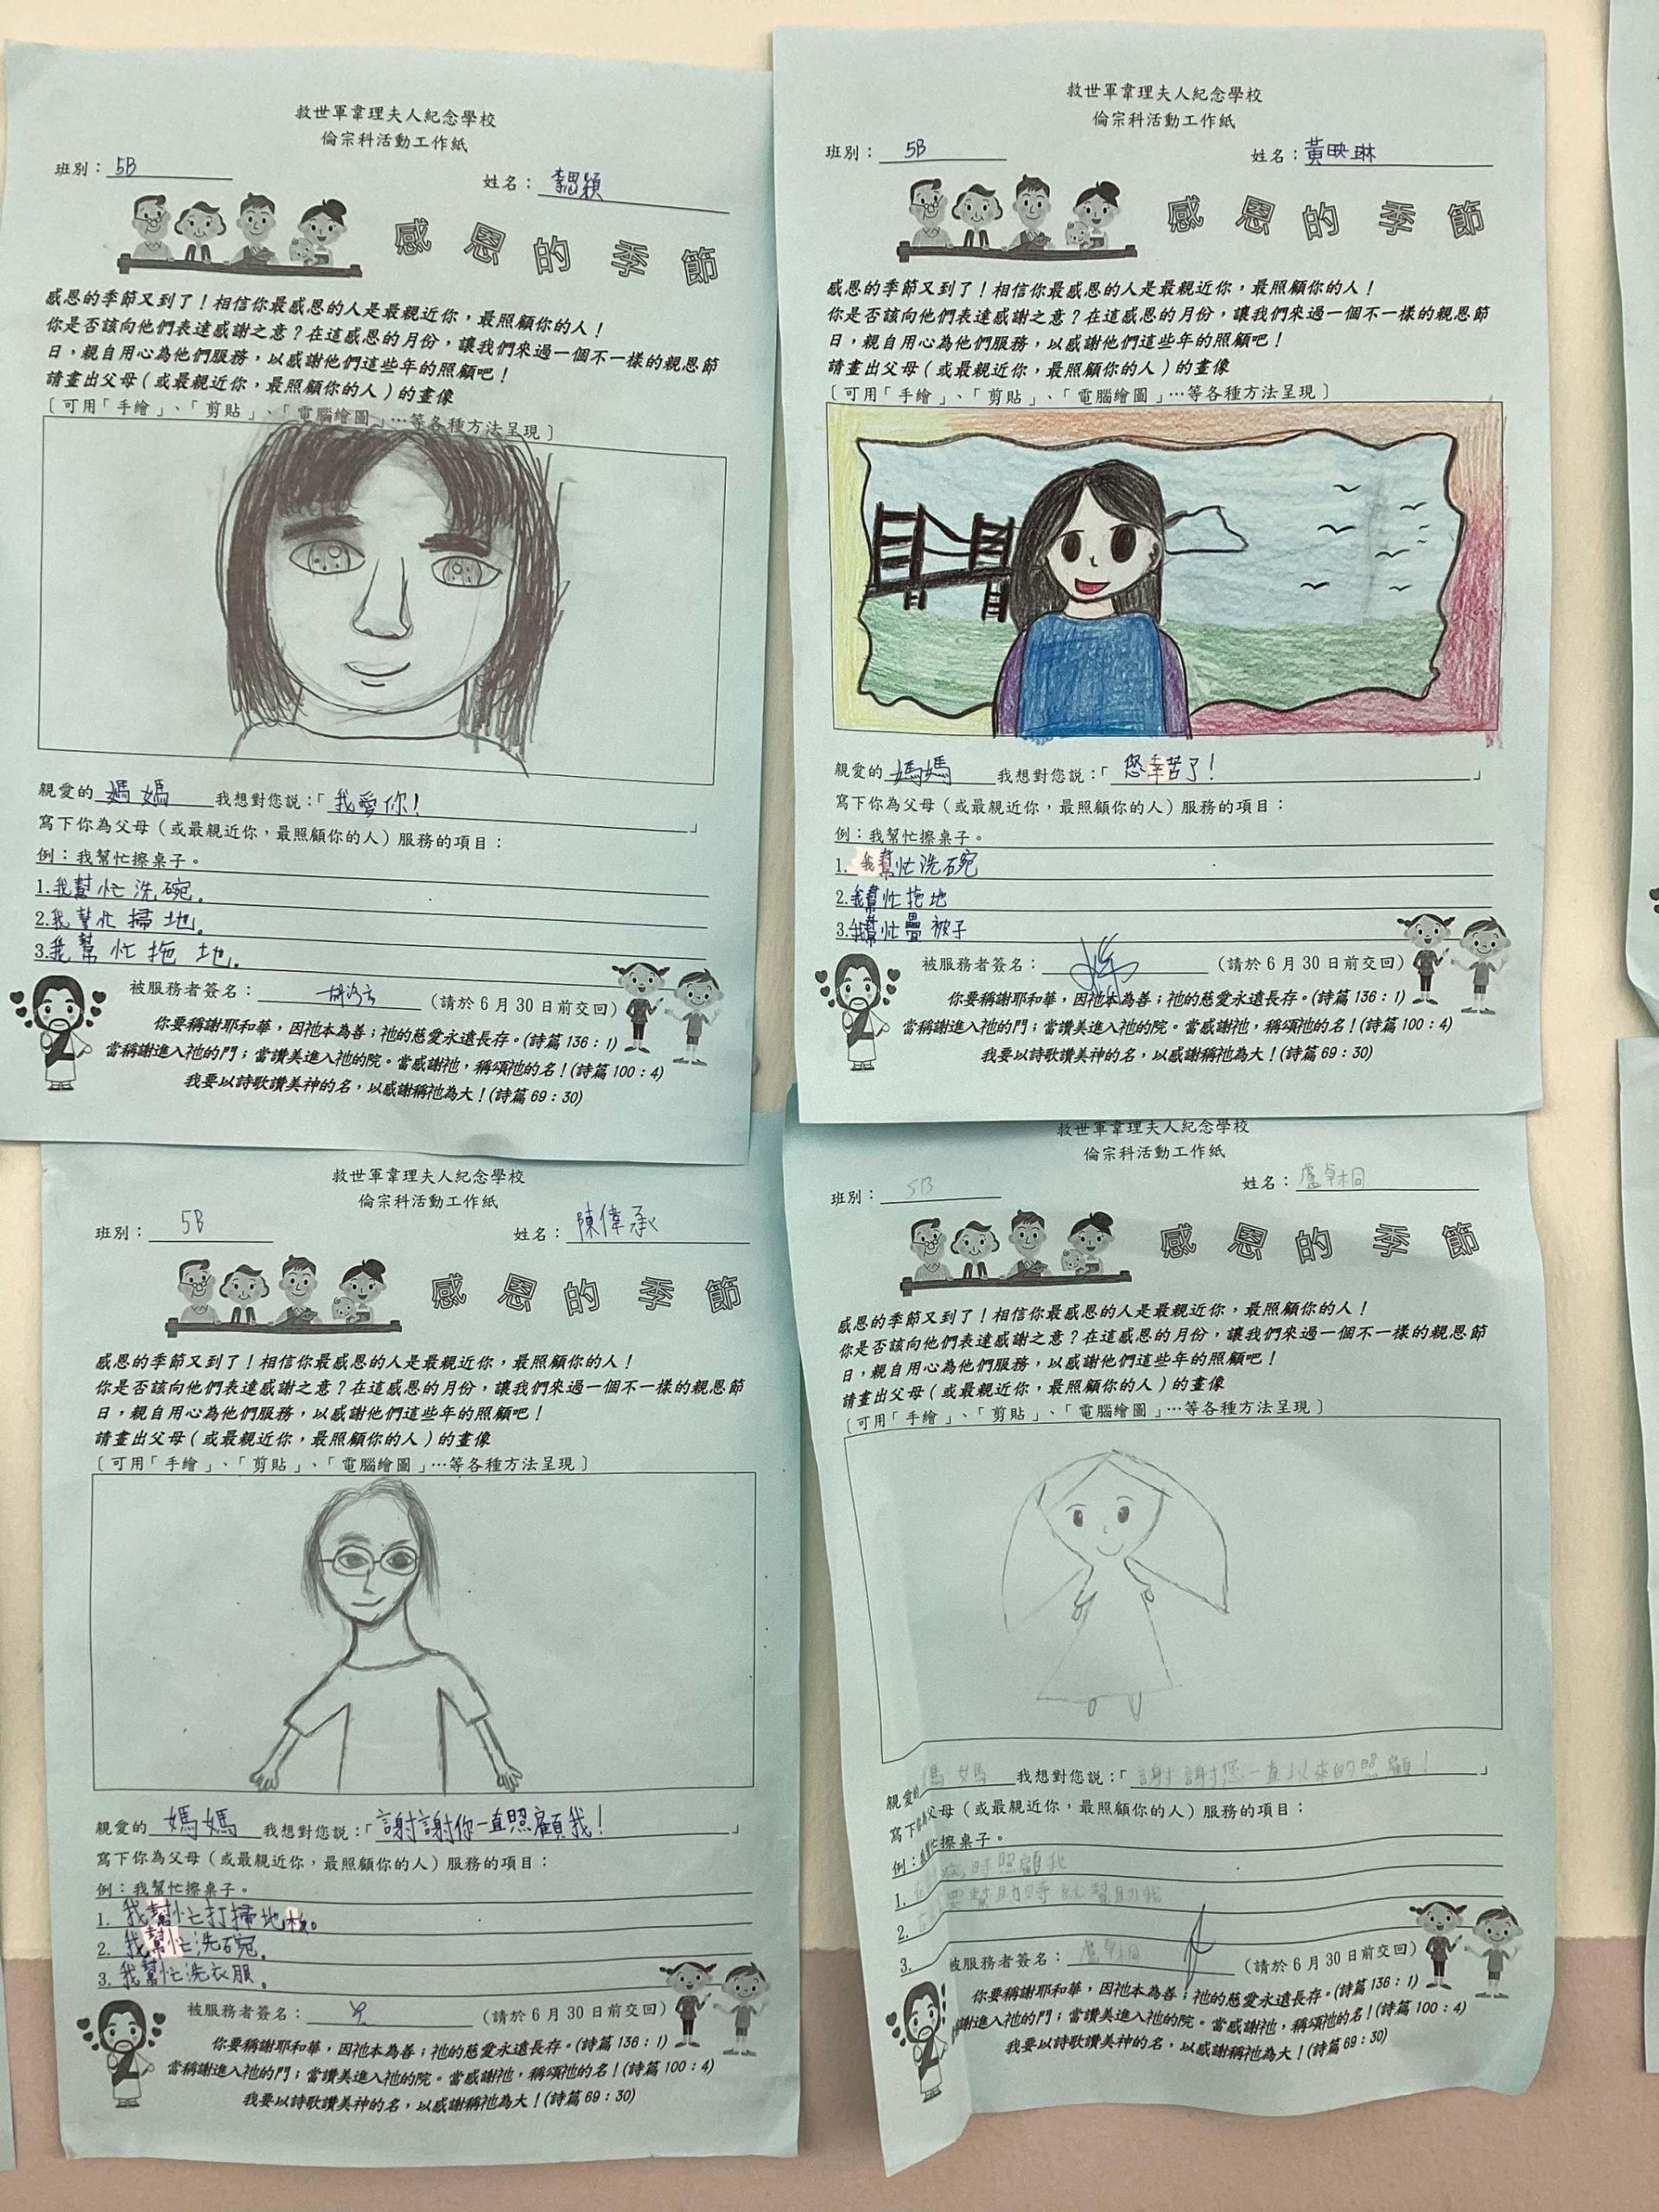 救世軍韋理夫人紀念學校
倫宗科活動工作紙
班別：5B 姓名：李思穎
感恩的季節
感恩的季節又到了！相信你最感恩的人是最親近你，最照顧你的人！
你是否該向他們表達感謝之意？在這感恩的月份，讓我們來過一個不一樣的親恩節
日，親自用心為他們服務，以感謝他們這些年的照顧吧！
請畫出父母（或最親近你，最照顧你的人）的畫像
〔可用「手繪」、「剪貼」、「電腦繪圖」…等各種方法呈現〕
親愛的 媽媽 我想對您說：「我愛你！」
寫下你為父母（或最親近你，最照顧你的人）服務的項目：
例：我幫忙擦桌子。
1.我幫忙洗碗。
2.我幫忙掃地。
3.我幫忙拖地。
被服務者簽名： （請於6月30日前交回）
你要稱謝耶和華，因祂本為善；祂的慈愛永遠長存。(詩篇136：1)
當稱謝進入祂的門；當讚美進入祂的院。當感謝祂，稱頌祂的名！(詩篇100：4)
我要以詩歌讚美神的名，以感謝稱祂為大！(詩篇69：30)
救世軍韋理夫人紀念學校
倫宗科活動工作紙
班別：5B 姓名：黃映琳
感恩的季節
感恩的季節又到了！相信你最感恩的人是最親近你，最照顧你的人！
你是否該向他們表達感謝之意？在這感恩的月份，讓我們來過一個不一樣的親恩節
日，親自用心為他們服務，以感謝他們這些年的照顧吧！
請畫出父母（或最親近你，最照顧你的人）的畫像
〔可用「手繪」、「剪貼」、「電腦繪圖」…等各種方法呈現〕
親愛的 媽媽 我想對您說：「您幸苦了！」
寫下你為父母（或最親近你，最照顧你的人）服務的項目：
例：我幫忙擦桌子。
1. 我幫忙洗碗
2.我幫忙拖地
3.我幫忙疊被子
被服務者簽名： （請於6月30日前交回）
你要稱謝耶和華，因祂本為善；祂的慈愛永遠長存。(詩篇136：1)
當稱謝進入祂的門；當讚美進入祂的院。當感謝祂，稱頌祂的名！(詩篇100：4)
我要以詩歌讚美神的名，以感謝稱祂為大！(詩篇69：30)
救世軍韋理夫人紀念學校
倫宗科活動工作紙
班別：5B 姓名：陳偉承
感恩的季節
感恩的季節又到了！相信你最感恩的人是最親近你，最照顧你的人！
你是否該向他們表達感謝之意？在這感恩的月份，讓我們來過一個不一樣的親恩節
日，親自用心為他們服務，以感謝他們這些年的照顧吧！
請畫出父母（或最親近你，最照顧你的人）的畫像
〔可用「手繪」、「剪貼」、「電腦繪圖」…等各種方法呈現〕
親愛的 媽媽 我想對您說：「謝謝你一直照顧我！」
寫下你為父母（或最親近你，最照顧你的人）服務的項目：
例：我幫忙擦桌子。
1. 我幫忙打掃地板。
2. 我幫忙洗碗。
3. 我幫忙洗衣服。
被服務者簽名： （請於6月30日前交回）
你要稱謝耶和華，因祂本為善；祂的慈愛永遠長存。(詩篇136：1)
當稱謝進入祂的門；當讚美進入祂的院。當感謝祂，稱頌祂的名！(詩篇100：4)
我要以詩歌讚美神的名，以感謝稱祂為大！(詩篇69：30)
救世軍韋理夫人紀念學校
倫宗科活動工作紙
班別：5B 姓名：盧卓桐
感恩的季節
感恩的季節又到了！相信你最感恩的人是最親近你，最照顧你的人！
你是否該向他們表達感謝之意？在這感恩的月份，讓我們來過一個不一樣的親恩節
日，親自用心為他們服務，以感謝他們這些年的照顧吧！
請畫出父母（或最親近你，最照顧你的人）的畫像
〔可用「手繪」、「剪貼」、「電腦繪圖」…等各種方法呈現〕
親愛的 媽媽 我想對您說：「謝謝您一直以來的照顧！」
寫下 父母（或最親近你，最照顧你的人）服務的項目：
例： 幫忙擦桌子。
1. 時照顧我
2. 要幫助時就幫助我
3.
被服務者簽名：盧卓桐 （請於6月30日前交回）
你要稱謝耶和華，因祂本為善；祂的慈愛永遠長存。(詩篇136：1)
謝進入祂的門；當讚美進入祂的院。當感謝祂，稱頌祂的名！(詩篇100：4)
我要以詩歌讚美神的名，以感謝稱祂為大！(詩篇69：30)